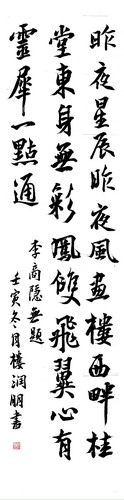 昨夜星辰昨夜風畫樓西畔桂
堂東身無彩鳳雙飛翼心有
靈犀一點通
李商隱無題
壬寅冬月樓潤朋書